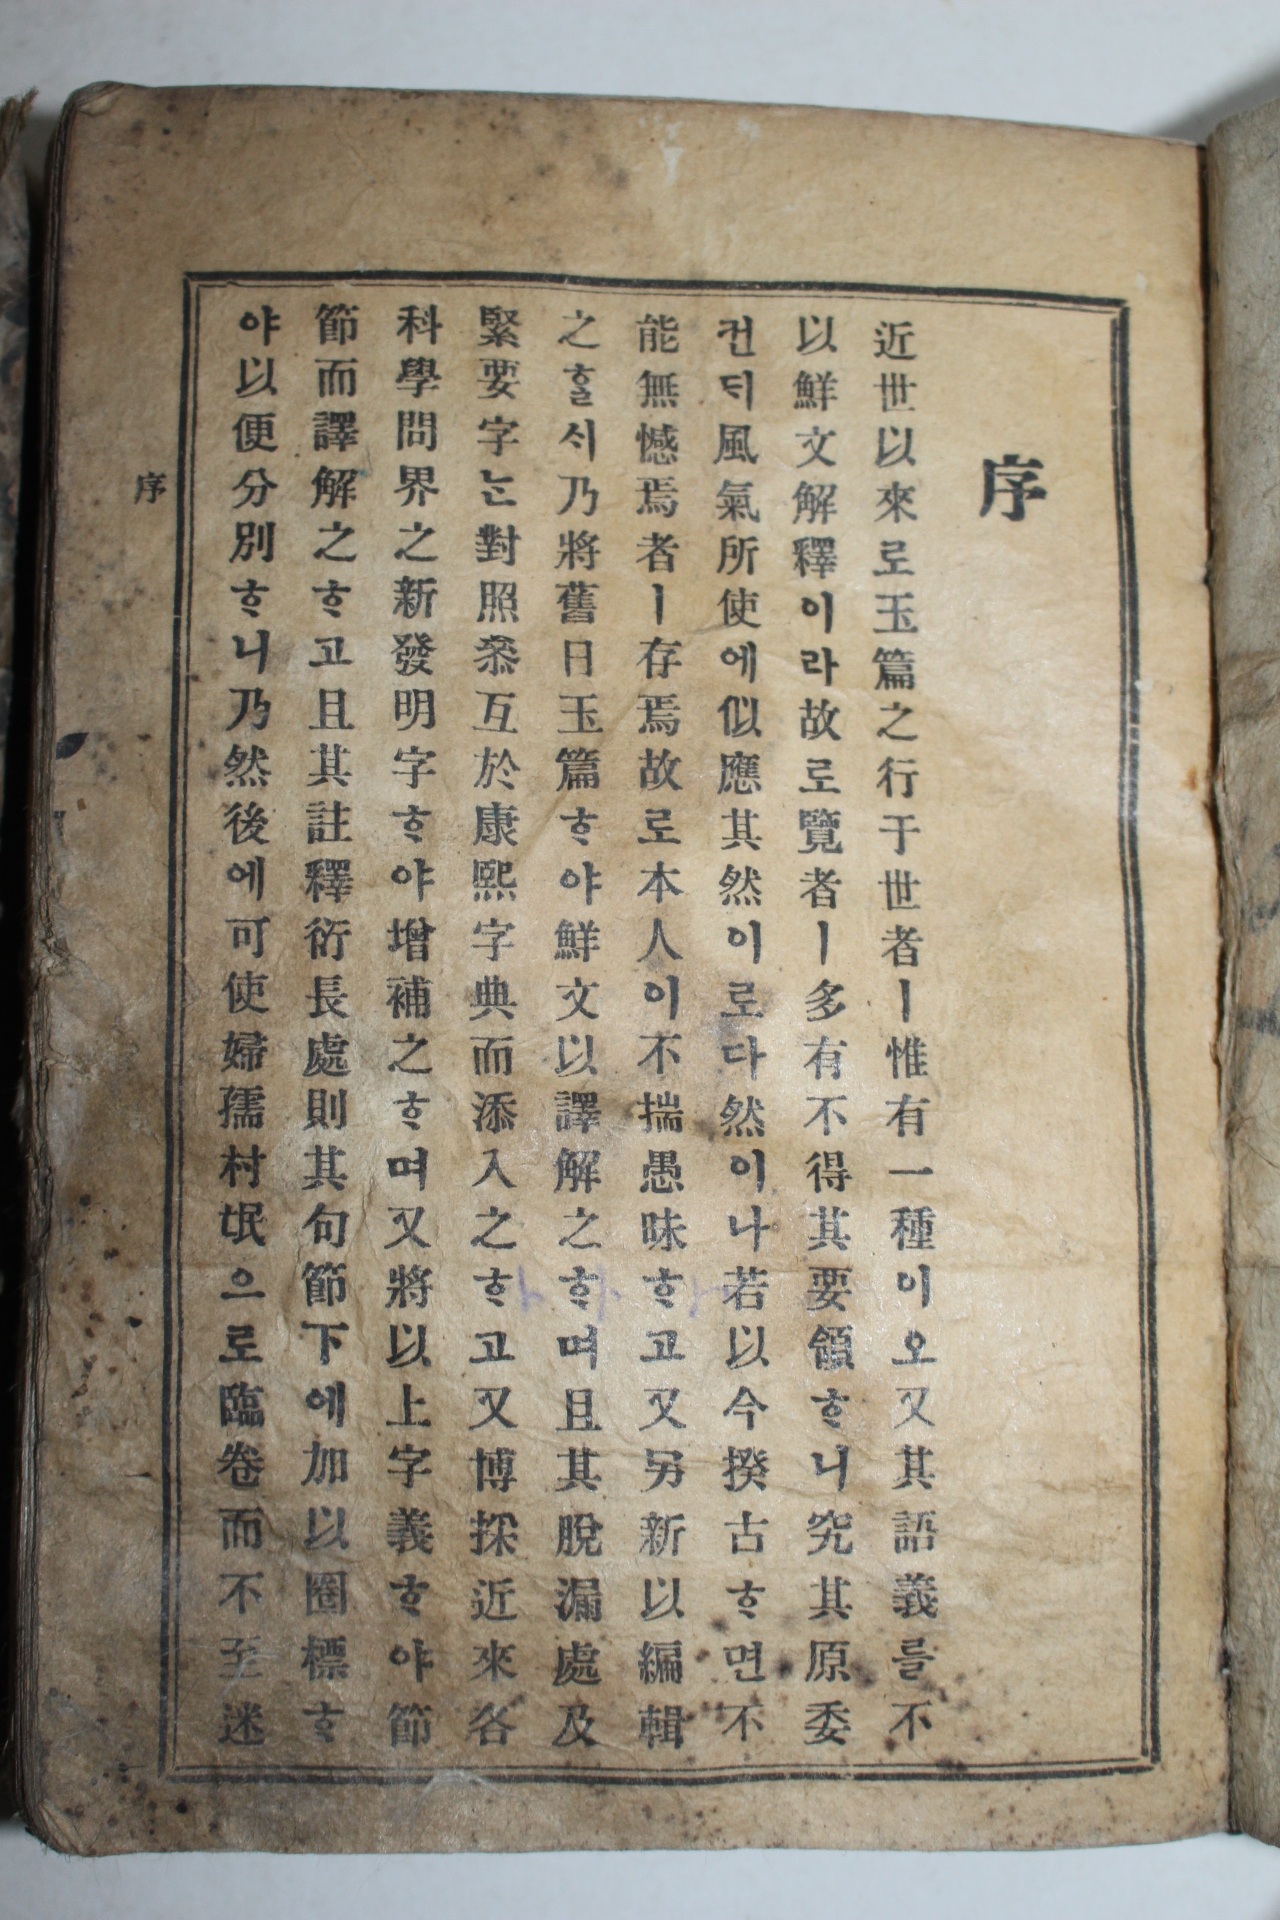 序
近世以來로玉篇之行于世者ㅣ惟有一種이오又其語義를不
以鮮文解釋이라故로覽者ㅣ多有不得其要領ᄒᆞ니究其原委
컨ᄃᆡ風氣所使에似應其然이로다然이나若以今揆古ᄒᆞ면不
能無憾焉者ㅣ存焉故로本人이不揣愚昧ᄒᆞ고又另新以編輯
之ᄒᆞᆯᄉᆡ乃將舊日玉篇ᄒᆞ야鮮文以譯解之ᄒᆞ며且其脫漏處及
緊要字ᄂᆞᆫ對照叅互於康熙字典而添入之ᄒᆞ고又博採近來各
科學問界之新發明字ᄒᆞ야增補之ᄒᆞ며又將以上字義ᄒᆞ야節
節而譯解之ᄒᆞ고且其註釋衍長處則其句節下에加以圈標ᄒᆞ
야以便分別ᄒᆞ니乃然後에可使婦孺村氓으로臨卷而不至迷
序